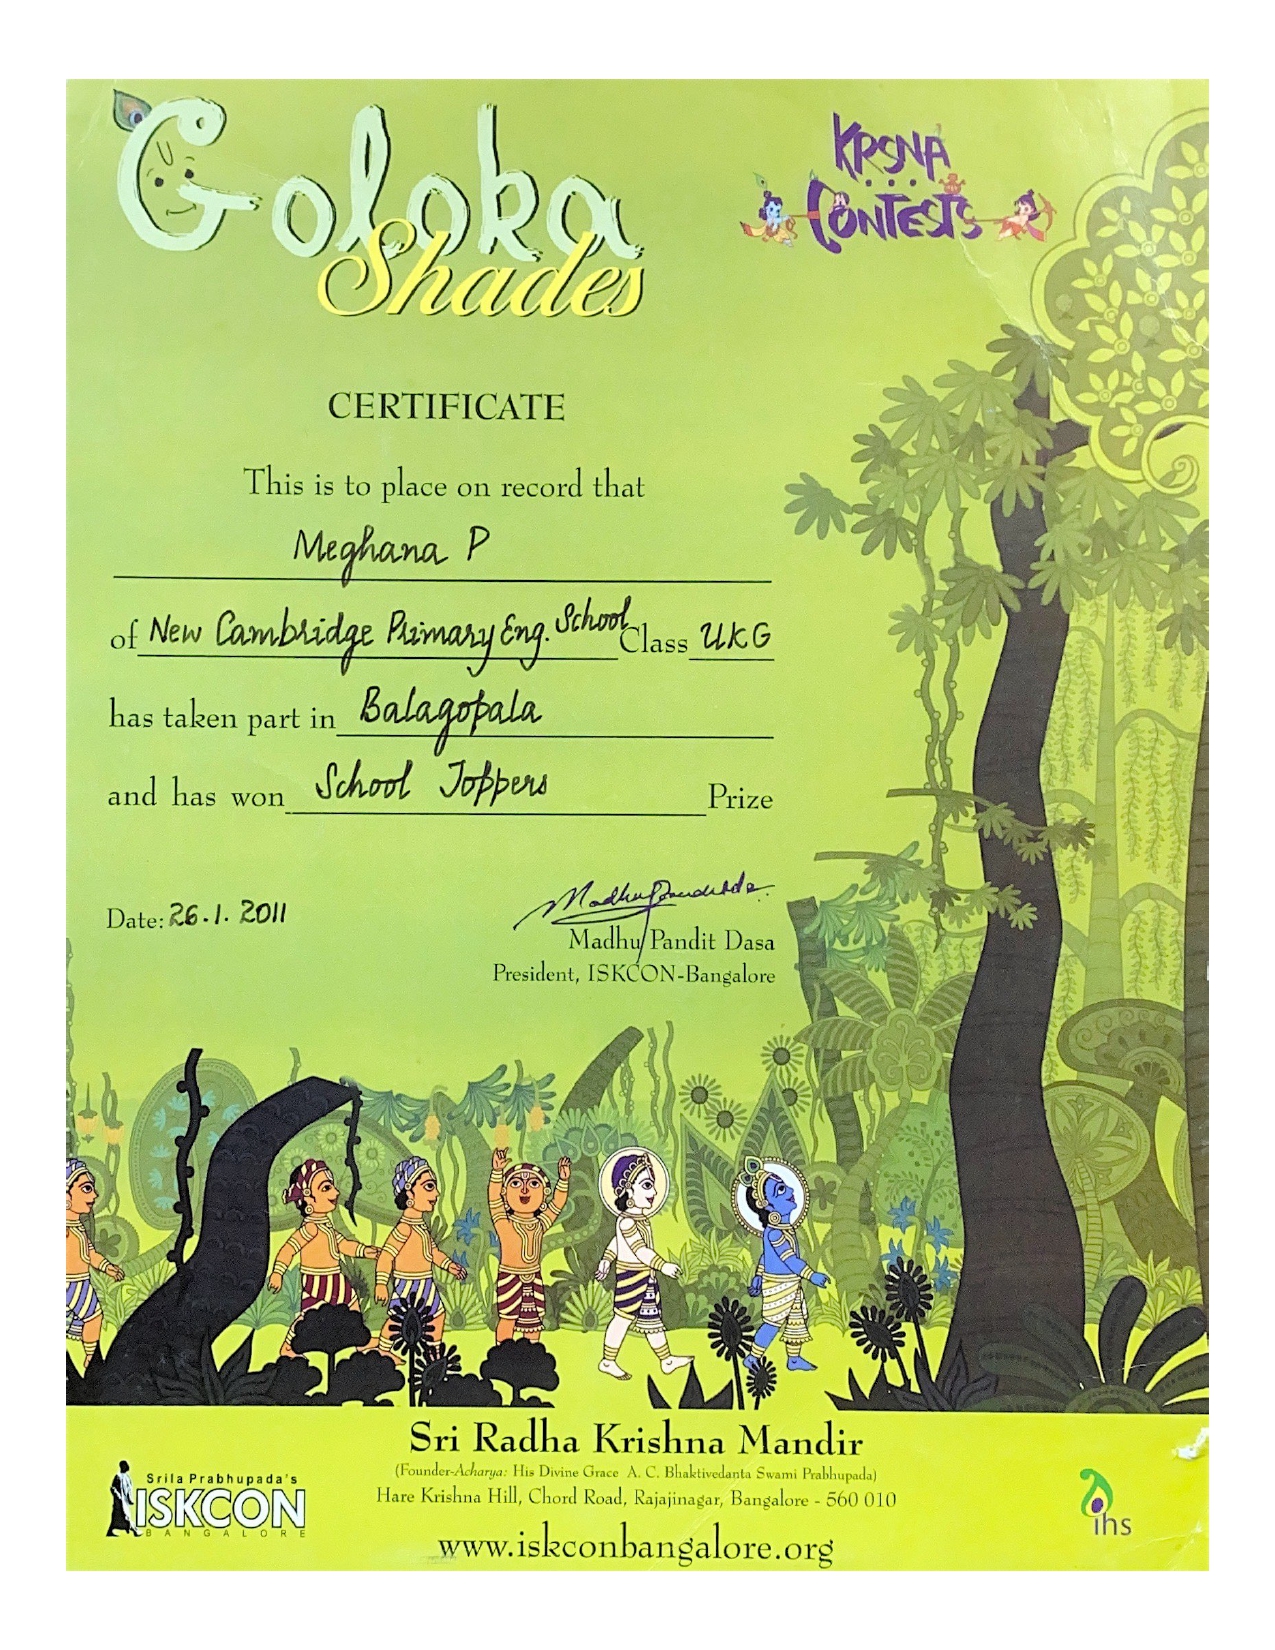 Goloka
Shades
KRSNA
CONTESTS
CERTIFICATE
This is to place on record that
Meghana P
of New Cambridge Primary Eng. School Class UKG
has taken part in Balagopala
and has won School Toppers Prize
Date: 26.1.2011
Madhu Pandit Dasa
President, ISKCON-Bangalore
Sri Radha Krishna Mandir
(Founder-Acharya: His Divine Grace A. C. Bhaktivedanta Swami Prabhupada)
Hare Krishna Hill, Chord Road, Rajajinagar, Bangalore - 560 010
www.iskconbangalore.org
Srila Prabhupada's
ISKCON
BANGALORE
ihs